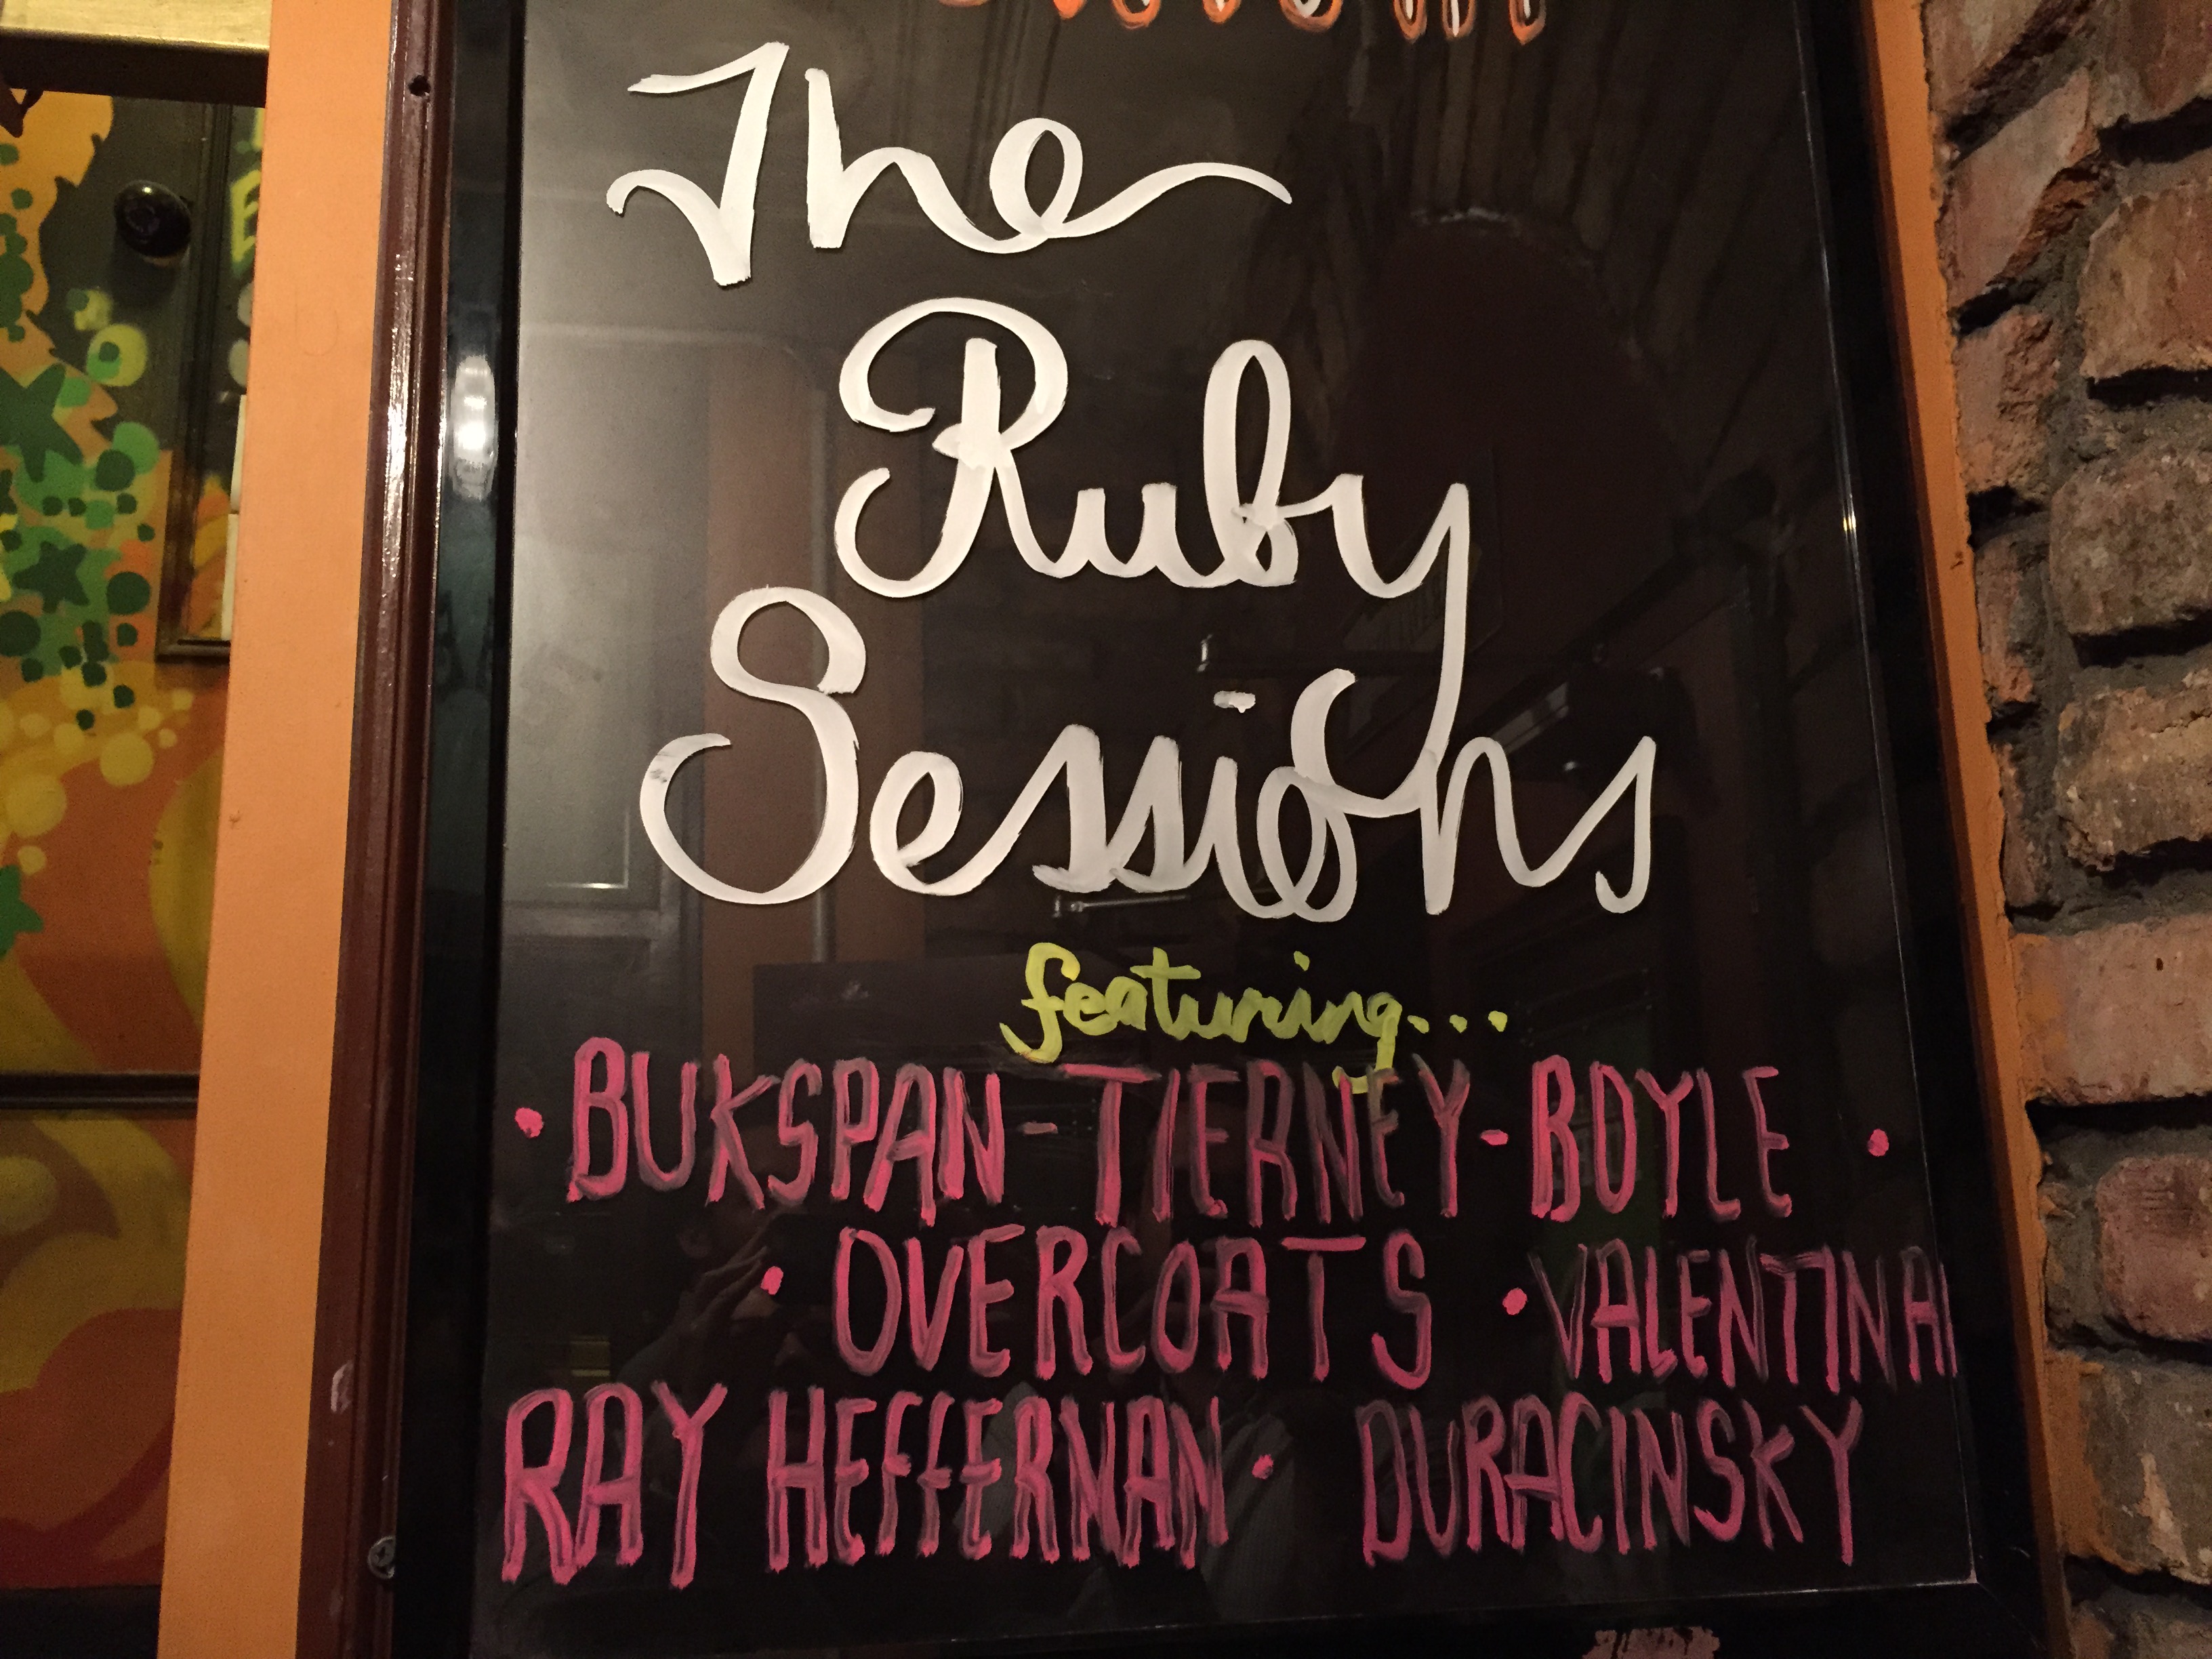 The
Ruby
Sessions
featuring...
• BUKSPAN-TIERNEY-BOYLE •
• OVERCOATS • VALENTINA
RAY HEFFERNAN • DURACINSKY